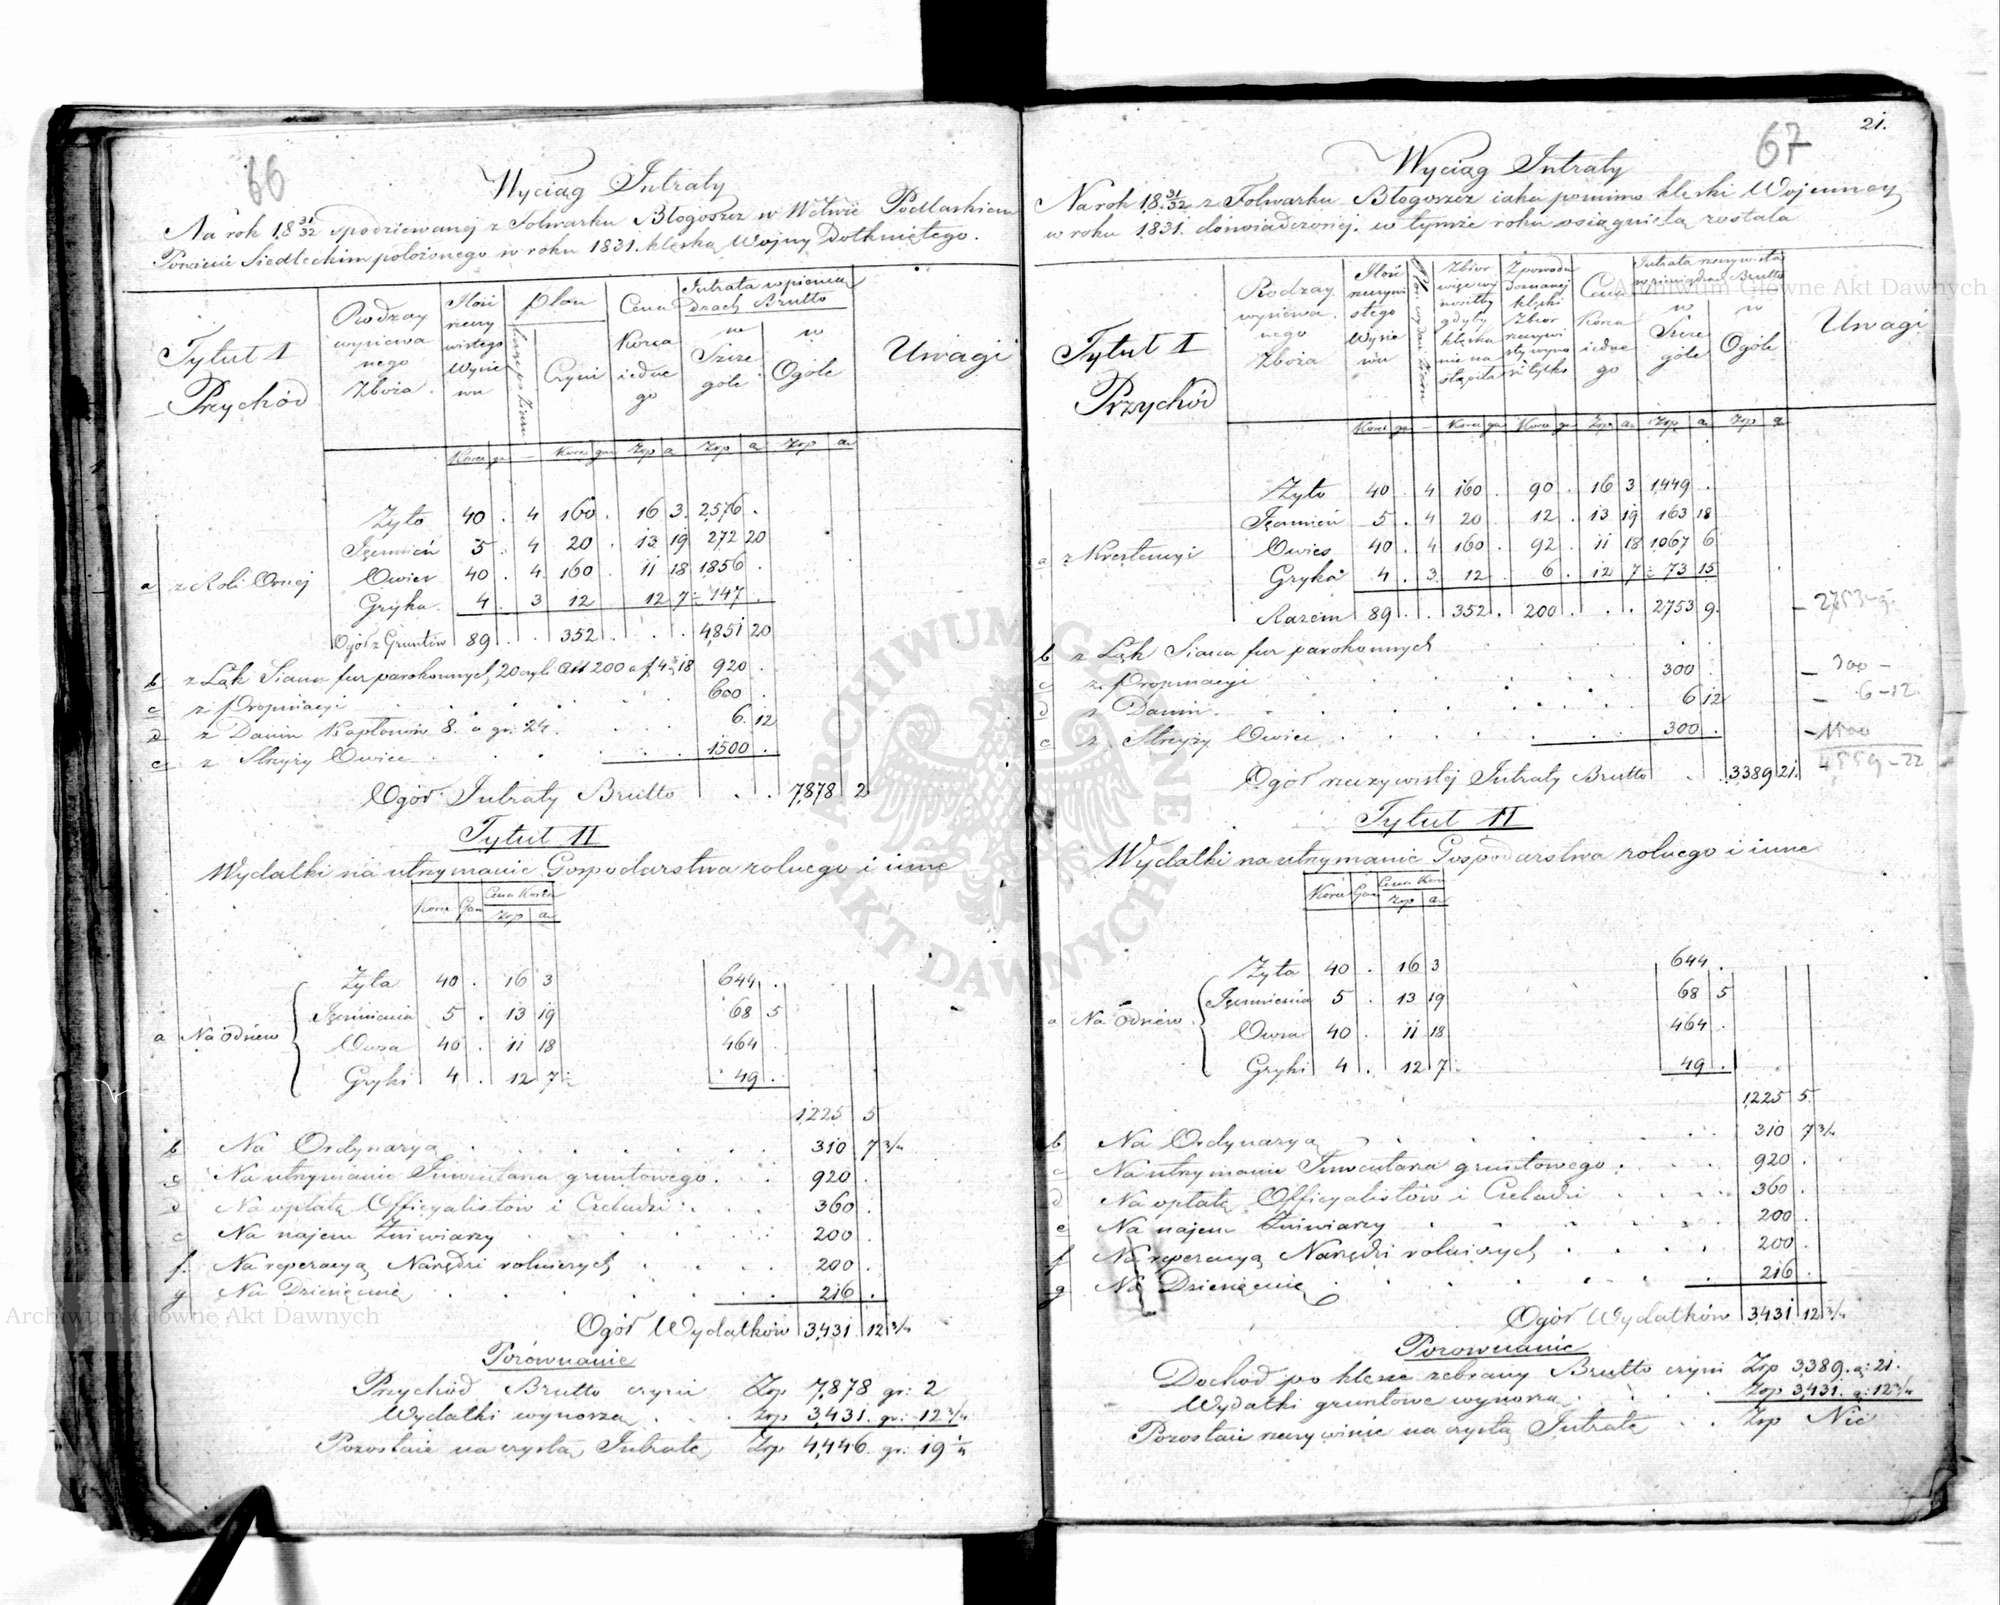 66
Wyciąg Intraty
Na rok 18 31/32 spodziewanej z Folwarku Błogoszcz w Wdztwie Podlaskiem
Powiecie Siedleckim położonego w roku 1831. klęską Wojny Dotkniętego.
Tytuł I Przychód
Rodzay wysiewanego Zboża
Ilość rzeczywistego Wysiewu
Plon
Czyni
Cena Korca iednego
Intrata w pieniądzach Brutto
w Szczególe
w Ogóle
Uwagi
Korce ga — Korce gar Złp g Złp g Złp g
a z Roli Ornej
Żyto 40 . 4 160 . 16 3 2,576 .
Jęczmień 5 . 4 20 . 13 19 272 20
Owies 40 . 4 160 . 11 18 1,856 .
Gryka 4 . 3 12 12 7 ½ 147 .
Ogół z Gruntów 89 . . 352 . . . 4,851 20
b z Łąk Siana fur parokonnych 20 czyli Ctr 200 a f 4. 18 920 .
c z Propinacyi 600 .
d z Danin Kapłonów 8. a gr: 24. 6. 12
e z Strzyży Owiec 1500 .
Ogół Intraty Brutto . . 7,878 2
Tytuł II
Wydatki na utrzymanie Gospodarstwa rolnego i inne
Korce Gar Cena Korca
Złp g
a Na Odsiew
Żyta 40 . 16 3 644 .
Jęczmienia 5 . 13 19 68 5
Owsa 40 . 11 18 464 .
Gryki 4 . 12 7 ½ 49 .
1,225 5
b Na Ordynaryą 310 7 3/4
c Na utrzymanie Inwentarza gruntowego. 920 .
d Na opłatę Officyalistów i Czeladzi 360 .
e Na najem Żniwiarzy 200 .
f. Na reperacyą Narzędzi rolniczych 200 .
g Na Dziesięcinę 216 .
Ogół Wydatków 3,431 12 3/4
Porównanie
Przychód Brutto czyni Złp 7,878 gr: 2
Wydatki wynoszą Złp 3,431. gr: 12 3/4
Pozostaie na czystą Intratę Złp 4,446. gr: 19 1/4
67
21.
Wyciąg Intraty
Na rok 18 31/32 z Folwarku Błogoszcz iaka pomimo klęski Wojennej
w roku 1831. doświadczonej. w tymże roku osiągniętą została
Tytuł I Przychód
Rodzay wysiewanego Zboża
Ilość rzeczywistego Wysiewu
Zbior więc wynosiłby gdyby klęska nie nastąpiła
Z powodu doznanej klęski Zbior rzeczywisty wynosi tylko
Cena Korca iednego
Intrata rzeczywista w pieniądzach Brutto
w Szczególe
w Ogóle
Uwagi
Korce ga — Korce ga Korce ga Złp g Złp g Złp g
a z Krestencyi
Żyto 40 . 4 160 . 90 . 16 3 1,449 .
Jęczmień 5 . 4 20 . 12 . 13 19 163 18
Owies 40 . 4 160 . 92 . 11 18 1,067 6
Gryka 4 . 3 12 . 6 . 12 7 ½ 73 15
Razem 89 . . 352 . 200 . . . 2753 9. – 2753-9-
b z Łąk Siana fur parokonnych
c z Propinacyi 300 . – 300 –
d z Danin 6 12 – 6-12
e z Strzyży Owiec 300 . – 1500
4559-22
Ogół rzeczywistej Intraty Brutto . . 3389 21.
Tytuł II
Wydatki na utrzymanie Gospodarstwa rolnego i inne
Korce Gar Cena Korca
Złp g
a Na Odsiew
Żyta 40 . 16 3 644 .
Jęczmienia 5 . 13 19 68 5
Owsa 40 . 11 18 464 .
Gryki 4 . 12 7 ½ 49 .
1,225 5.
b Na Ordynaryą 310 7 3/4
c Na utrzymanie Inwentarza gruntowego. 920 .
d Na opłatę Officyalistów i Czeladzi 360 .
e Na najem Żniwiarzy 200 .
f Na reperacyą Narzędzi rolniczych 200 .
g Na Dziesięcinę 216 .
Ogół Wydatków 3,431 12 3/4
Porownanie
Dochód po klęsce zebrany Brutto czyni Złp 3,389. g: 21.
Wydatki gruntowe wynoszą Złp 3,431. g: 12 3/4
Pozostaie rzeczywiście na czystą Intratę Złp Nic
Archiwum Główne Akt Dawnych
Archiwum Główne Akt Dawnych
ARCHIWUM GŁÓWNE · AKT DAWNYCH ·